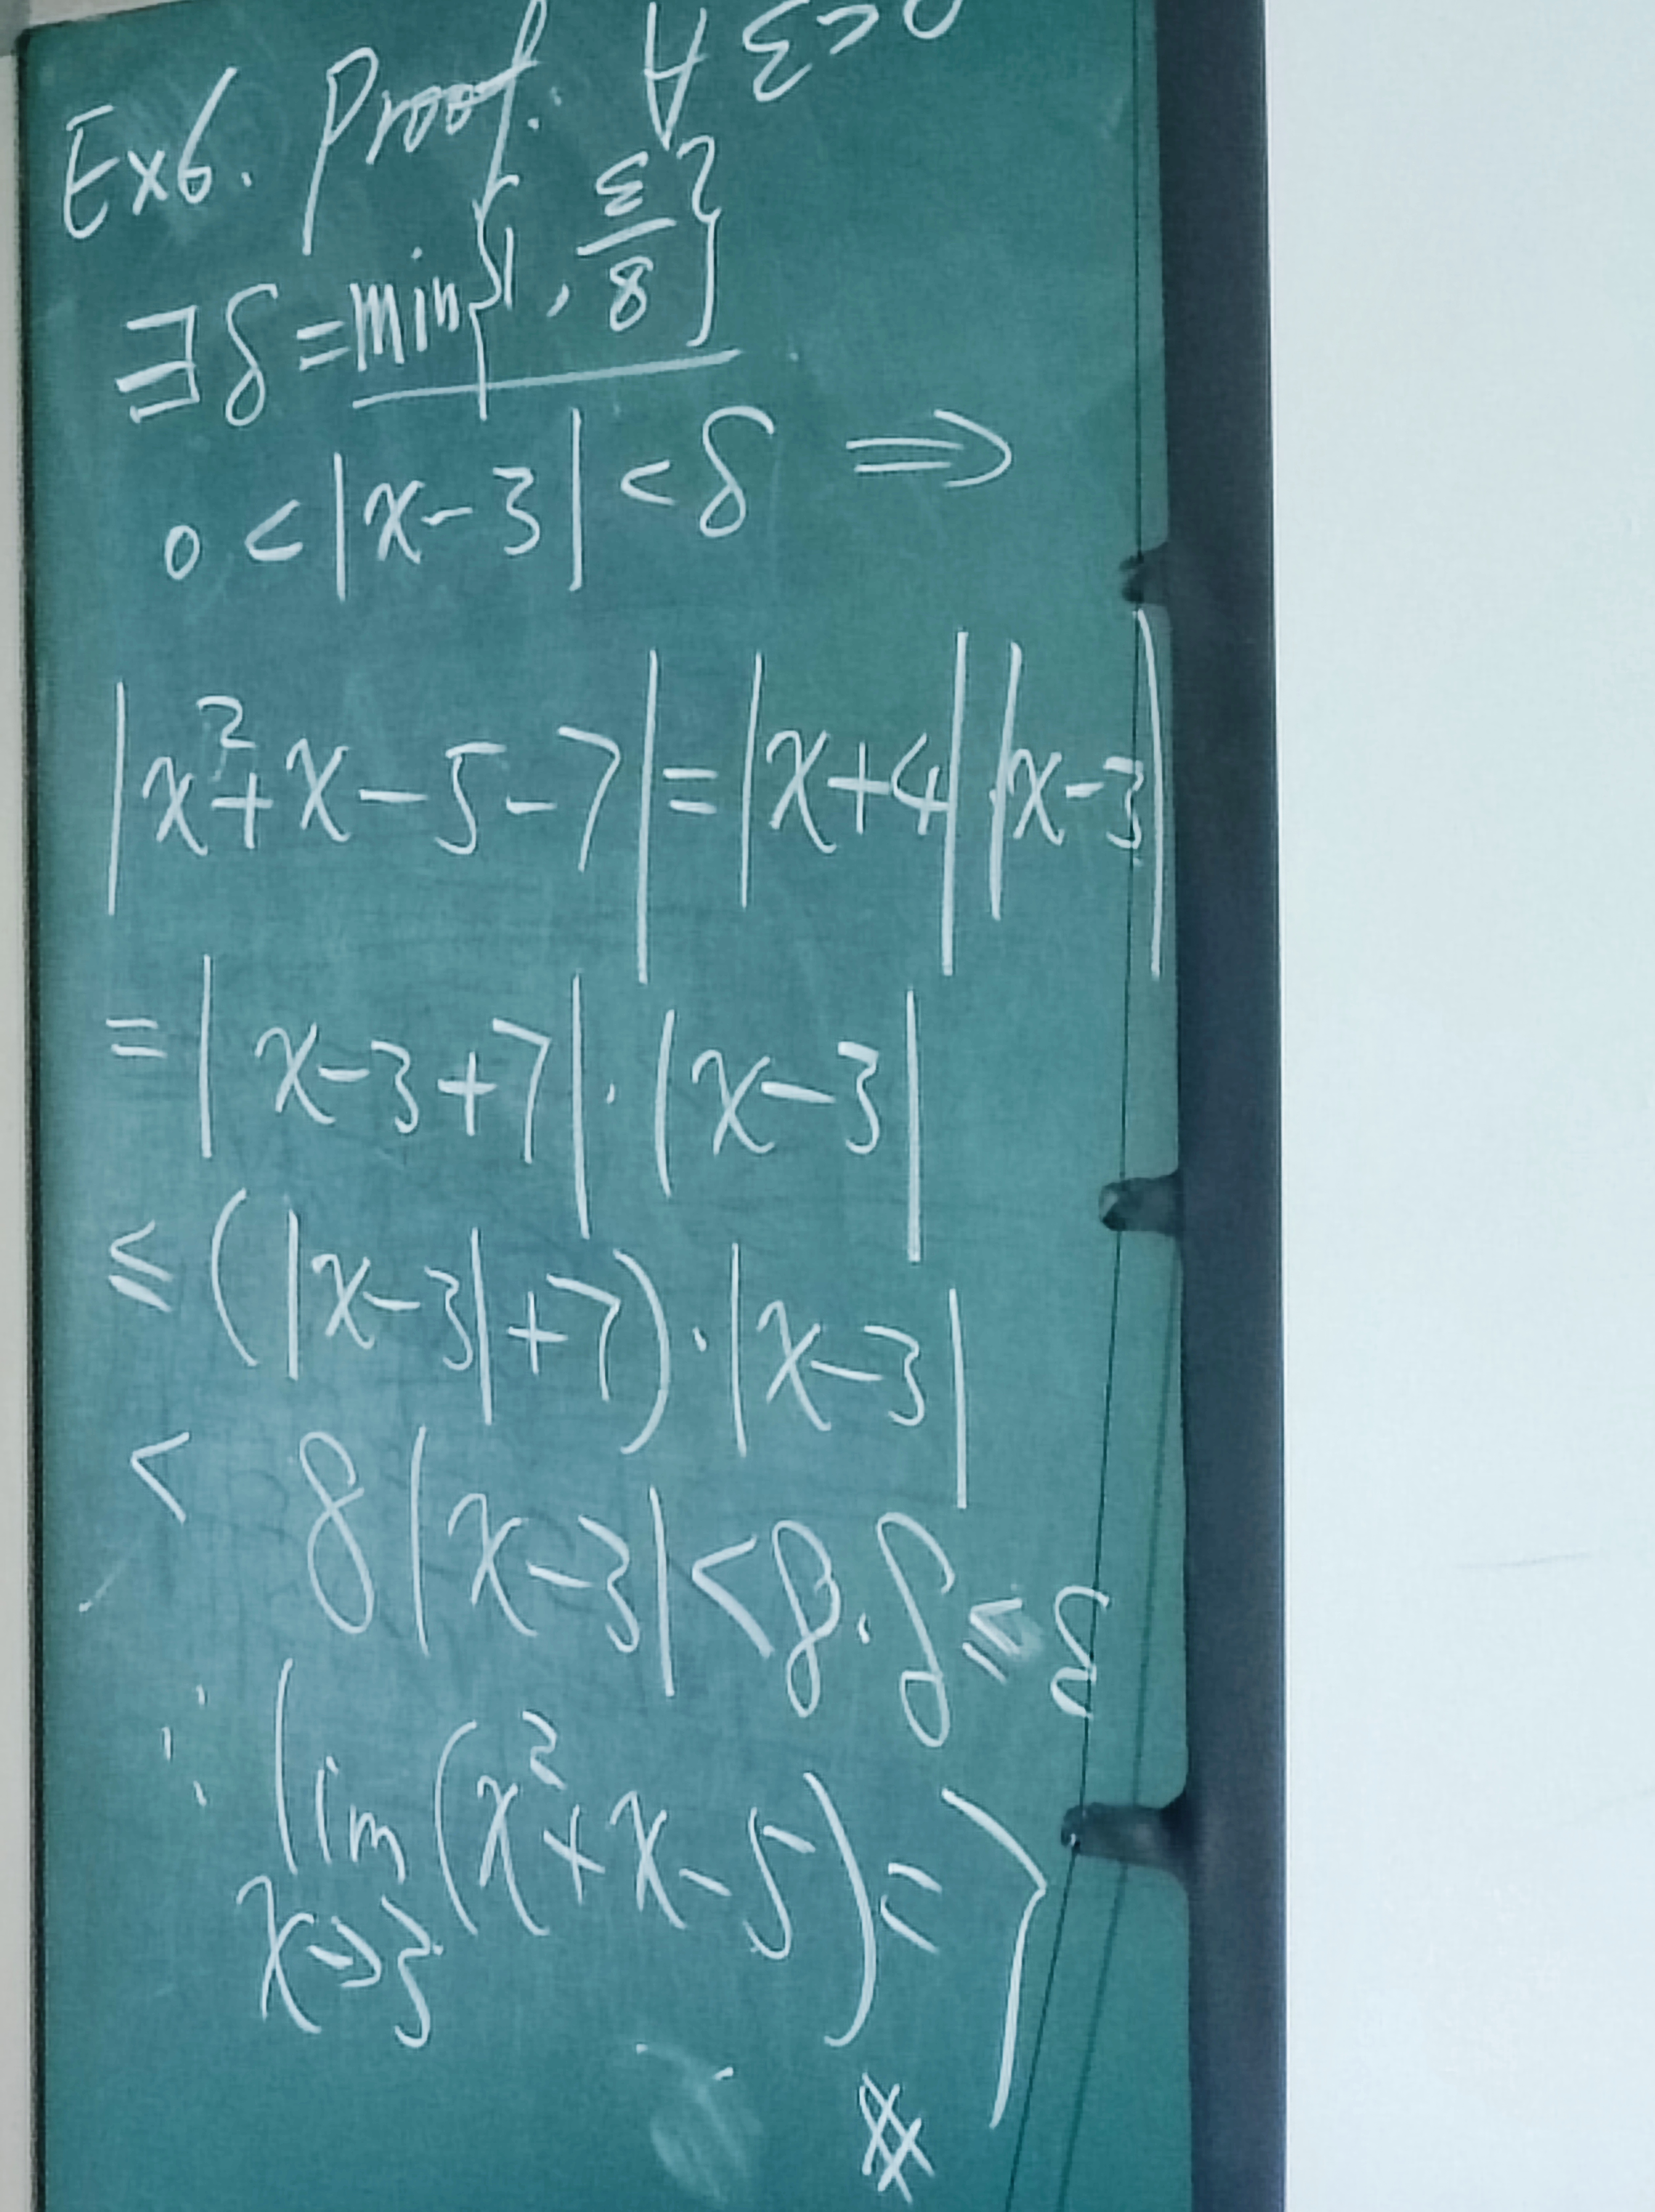 Ex6. Proof. ∀ ε>0
∃ δ = min{1, ε/8}
0 < |x-3| < δ ⇒
|x²+x-5-7| = |x+4||x-3|
= |x-3+7|·|x-3|
≤ (|x-3|+7)·|x-3|
< 8|x-3| < 8·δ ≤ ε
∴ lim x→3 (x²+x-5) = 7